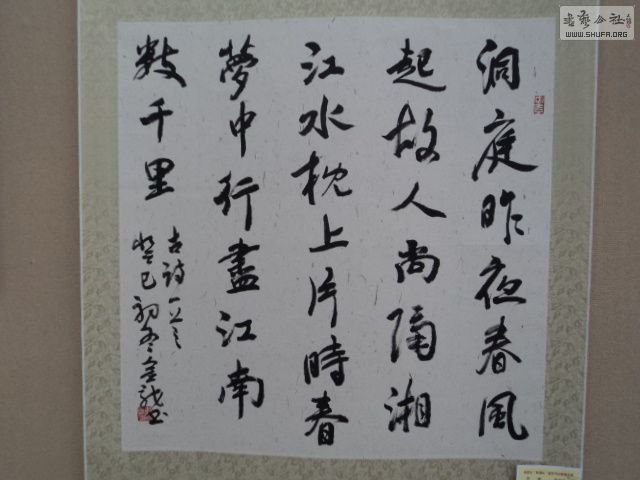 洞庭昨夜春風
起故人尚隔湘
江水枕上片時春
夢中行盡江南
數千里
古詩一首
癸巳初冬金龍書
書藝公社
WWW.SHUFA.ORG